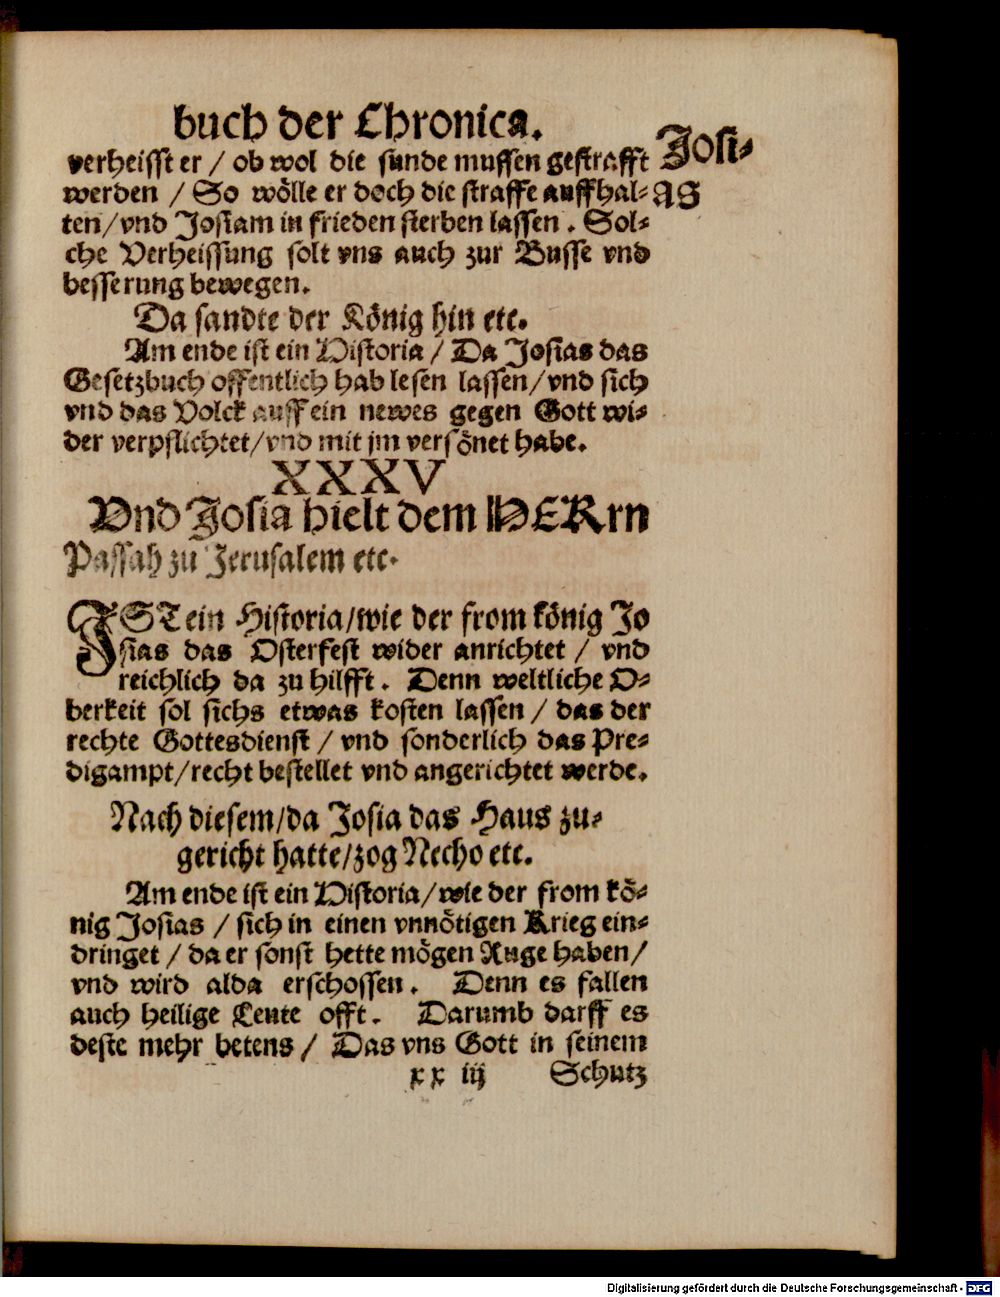 buch der Chronica.
verheisst er / ob wol die sunde mussen gestrafft
Josi-
as
werden / So wölle er doch die straffe auffhal-
ten/vnd Josiam in frieden sterben lassen. Sol-
che Verheissung solt vns auch zur Busse vnd
besserung bewegen.
Da sandte der König hin etc.
Am ende ist ein Historia / Da Josias das
Gesetzbuch offentlich hab lesen lassen/vnd sich
vnd das Volck auff ein newes gegen Gott wi-
der verpflichtet/vnd mit jm versönet habe.
XXXV
Vnd Josia hielt dem HERrn
Passah zu Jerusalem etc.
IST ein Historia/wie der from könig Jo
sias das Osterfest wider anrichtet / vnd
reichlich da zu hilfft. Denn weltliche O-
berkeit sol sichs etwas kosten lassen / das der
rechte Gottesdienst / vnd sonderlich das Pre-
digampt/recht bestellet vnd angerichtet werde.
Nach diesem/da Josia das Haus zu-
gericht hatte/zog Necho etc.
Am ende ist ein Historia/wie der from kö-
nig Josias / sich in einen vnnötigen Krieg ein-
dringet / da er sonst hette mögen Ruge haben/
vnd wird alda erschossen. Denn es fallen
auch heilige Leute offt. Darumb darff es
deste mehr betens / Das vns Gott in seinem
xx iij Schutz
Digitalisierung gefördert durch die Deutsche Forschungsgemeinschaft - DFG